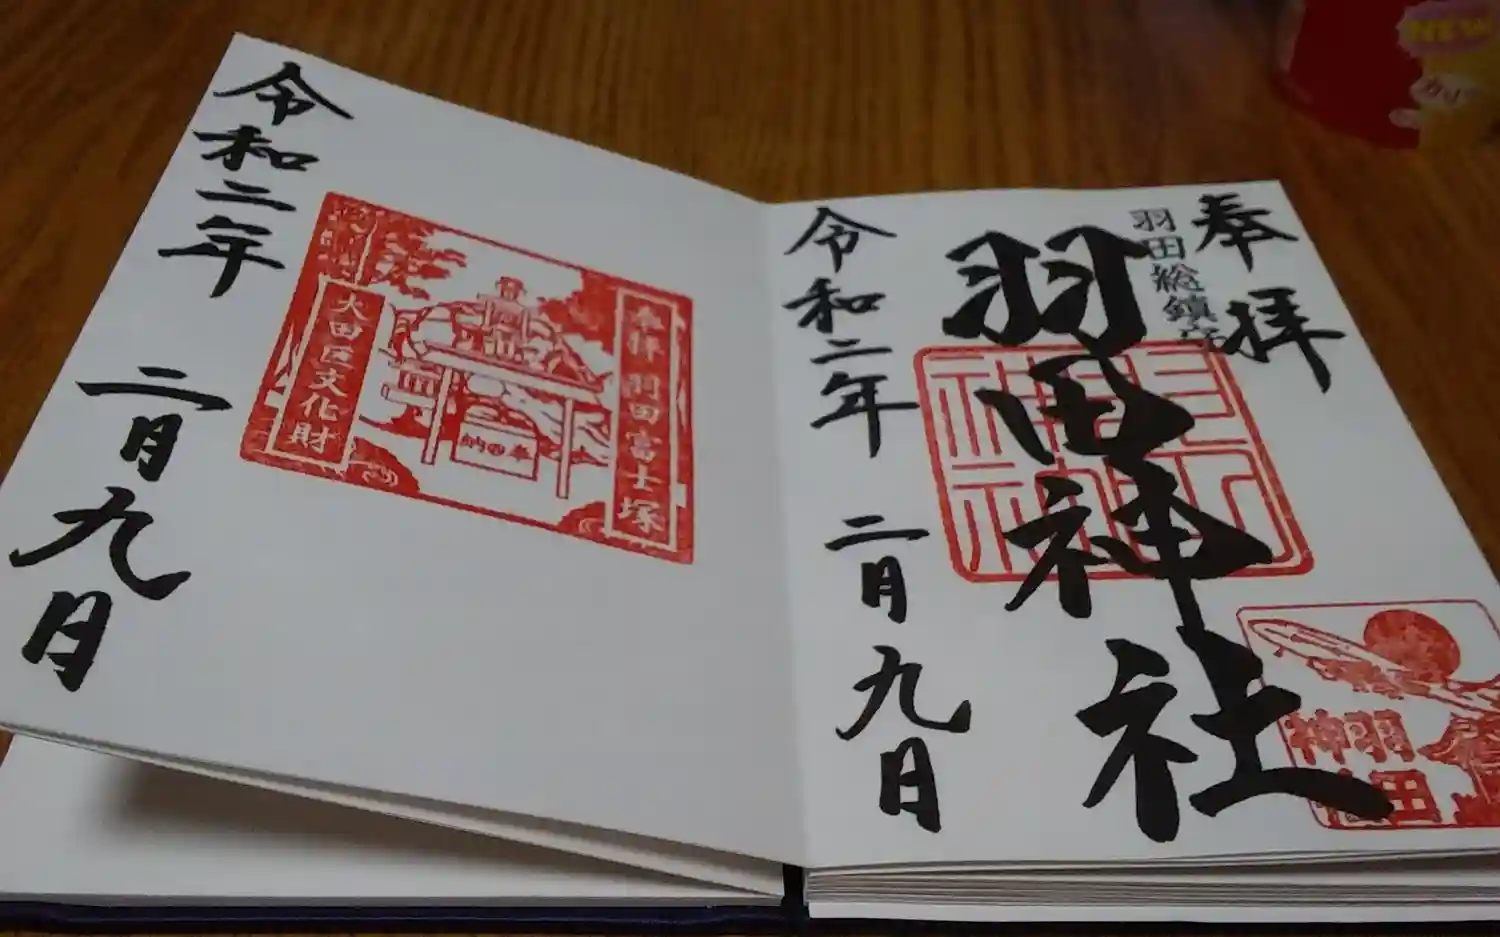 奉拝
羽田総鎮守
羽田神社
羽田
神社
令和二年 二月九日
奉拝 羽田富士塚
奉納
大田区文化財
令和二年 二月九日
NEW